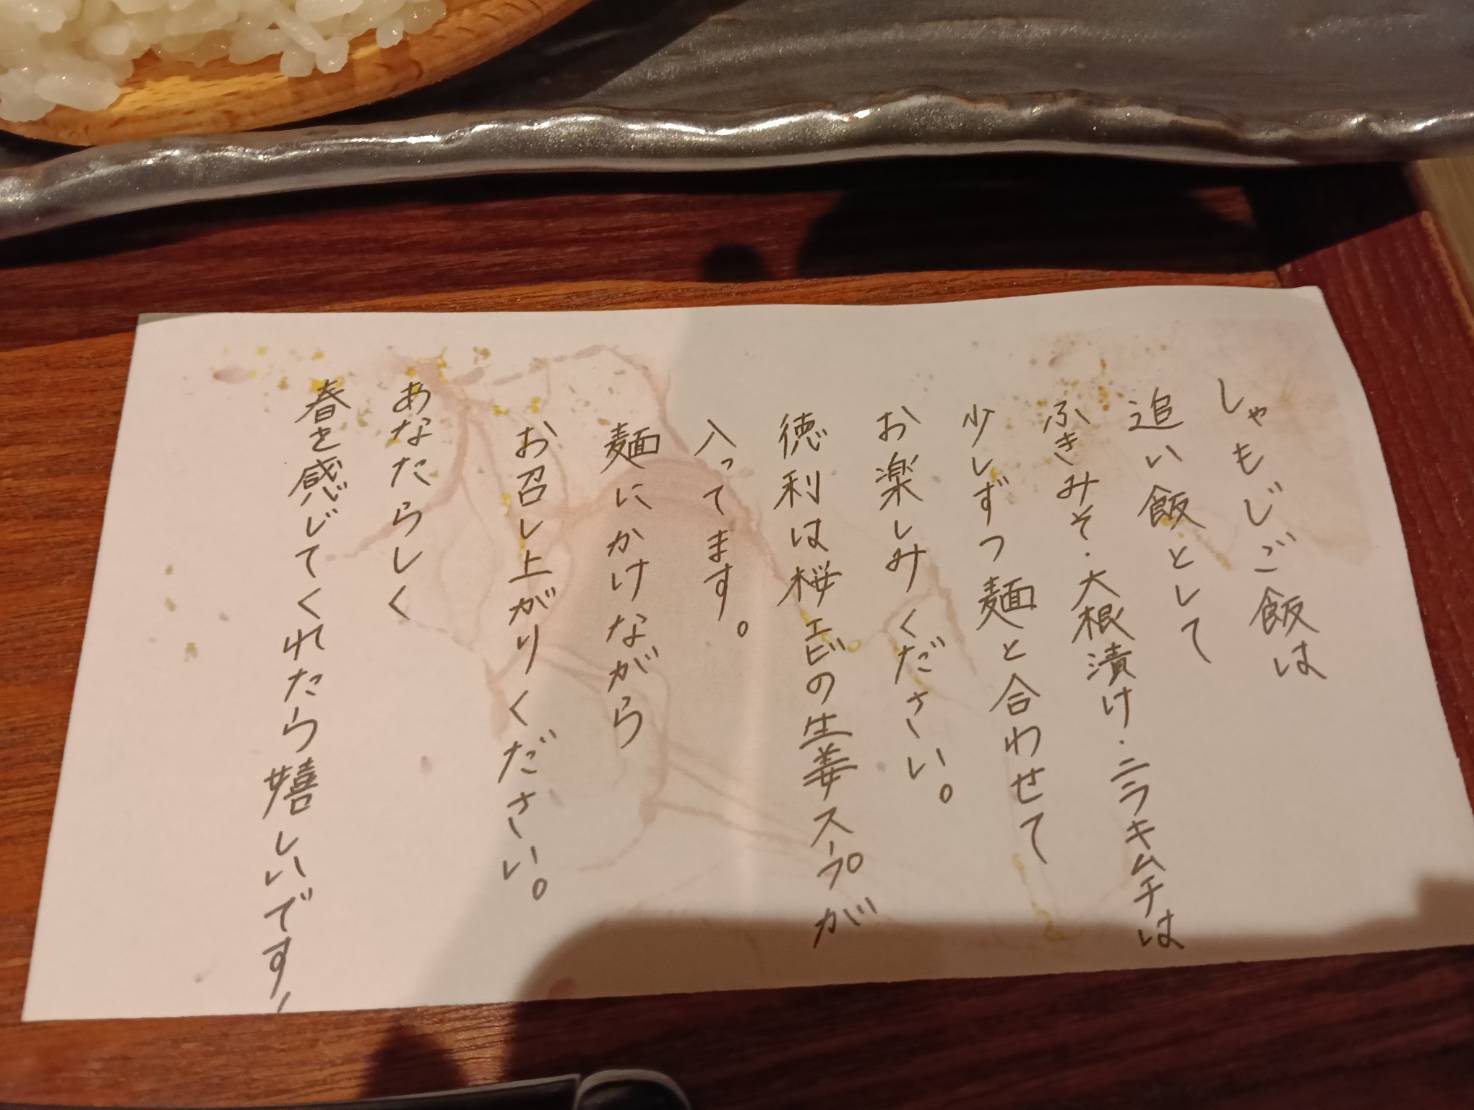 しゃもじご飯は
追い飯として
ふきみそ・大根漬け・ニラキムチは
少しずつ麺と合わせて
お楽しみください。
徳利は桜エビの生姜スープが
入ってます。
麺にかけながら
お召し上がりください。
あなたらしく
春を感じてくれたら嬉しいです!